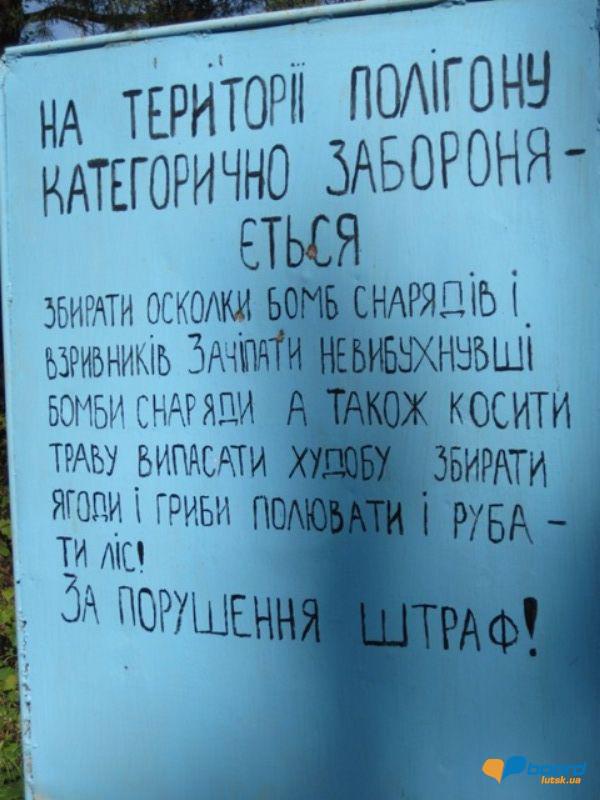 НА ТЕРИТОРІЇ ПОЛІГОНУ
КАТЕГОРИЧНО ЗАБОРОНЯ-
ЄТЬСЯ
ЗБИРАТИ ОСКОЛКИ БОМБ СНАРЯДІВ І
ВЗРИВНИКІВ ЗАЧІПАТИ НЕВИБУХНУВШІ
БОМБИ СНАРЯДИ А ТАКОЖ КОСИТИ
ТРАВУ ВИПАСАТИ ХУДОБУ ЗБИРАТИ
ЯГОДИ І ГРИБИ ПОЛЮВАТИ І РУБА-
ТИ ЛІС!
ЗА ПОРУШЕННЯ ШТРАФ!
board
lutsk.ua